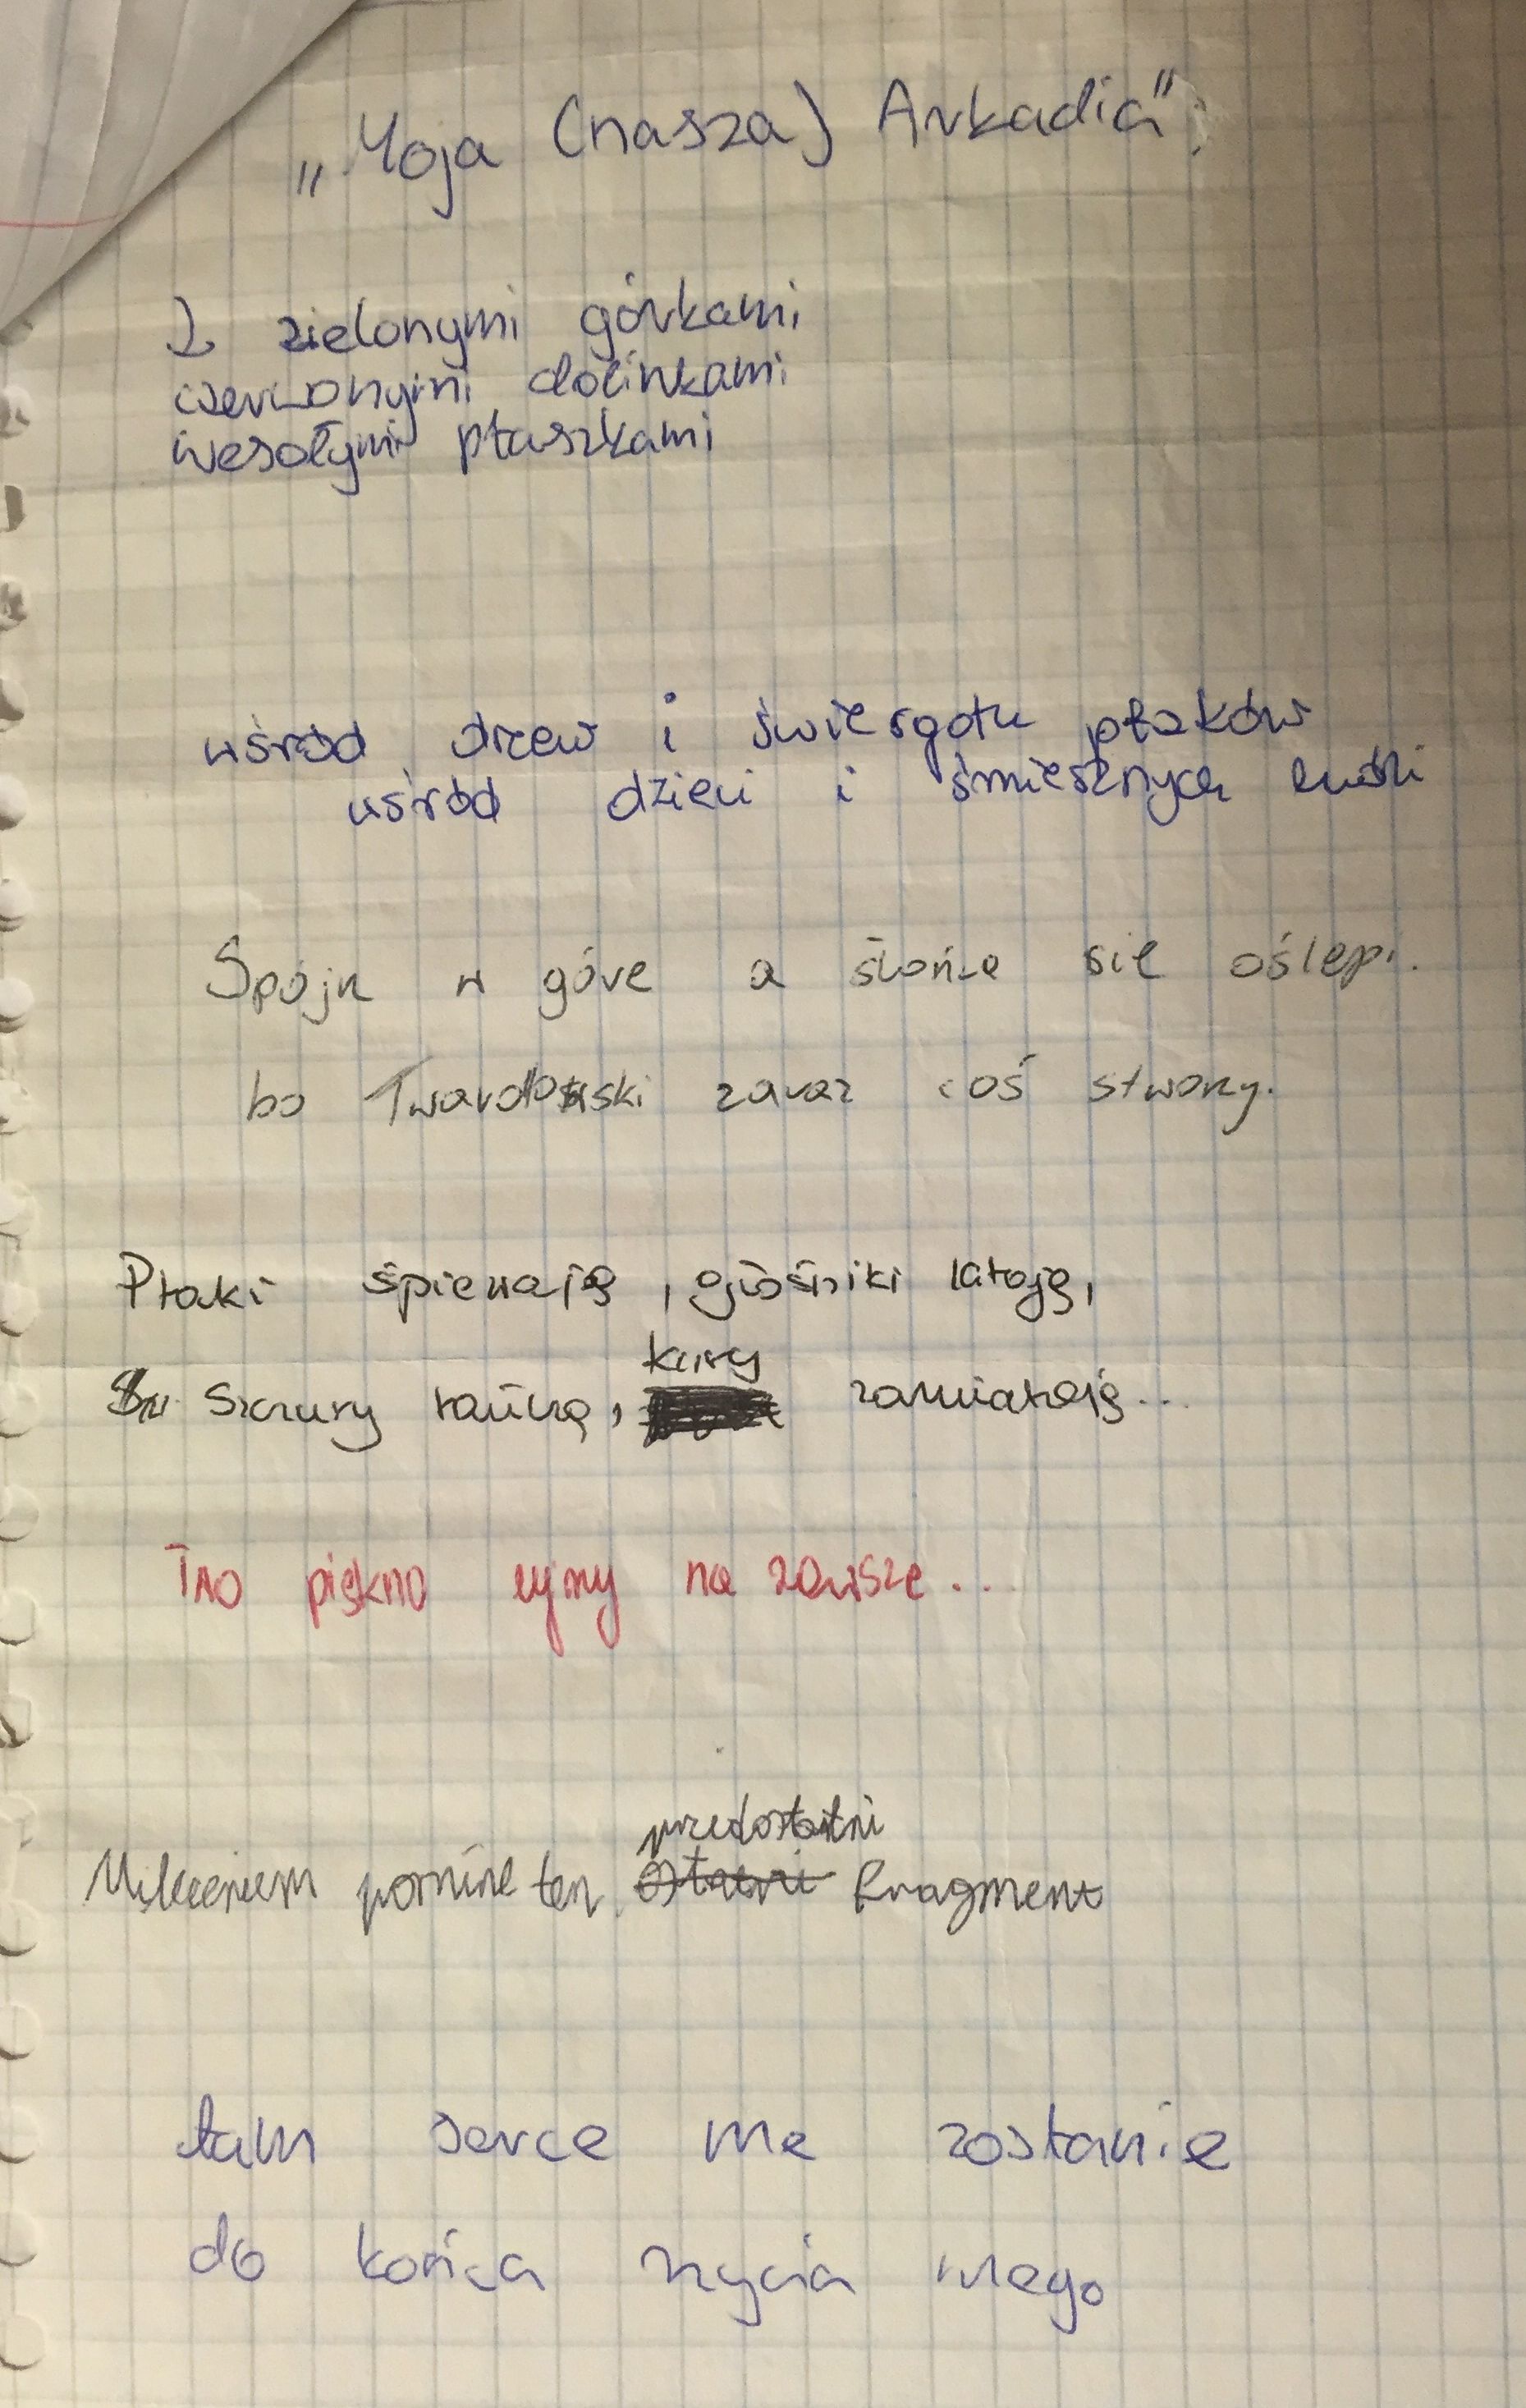 „Moja (nasza) Arkadia"
Z zielonymi górkami
czerwonymi dolinkami
wesołymi ptaszkami
wśród drzew i świergotu ptaków
wśród dzieci i śmiesznych ludzi
Spójn w góre a słońce sie oślepi.
bo Twardowski zaraz coś stworzy.
Ptaki śpiewają, głośniki latają,
Szczury tańczą, kury zamiatają...
piękno na zawsze...
Milczeniem pomine ten przedostatni fragment
tam serce me zostanie
do końca życia mego